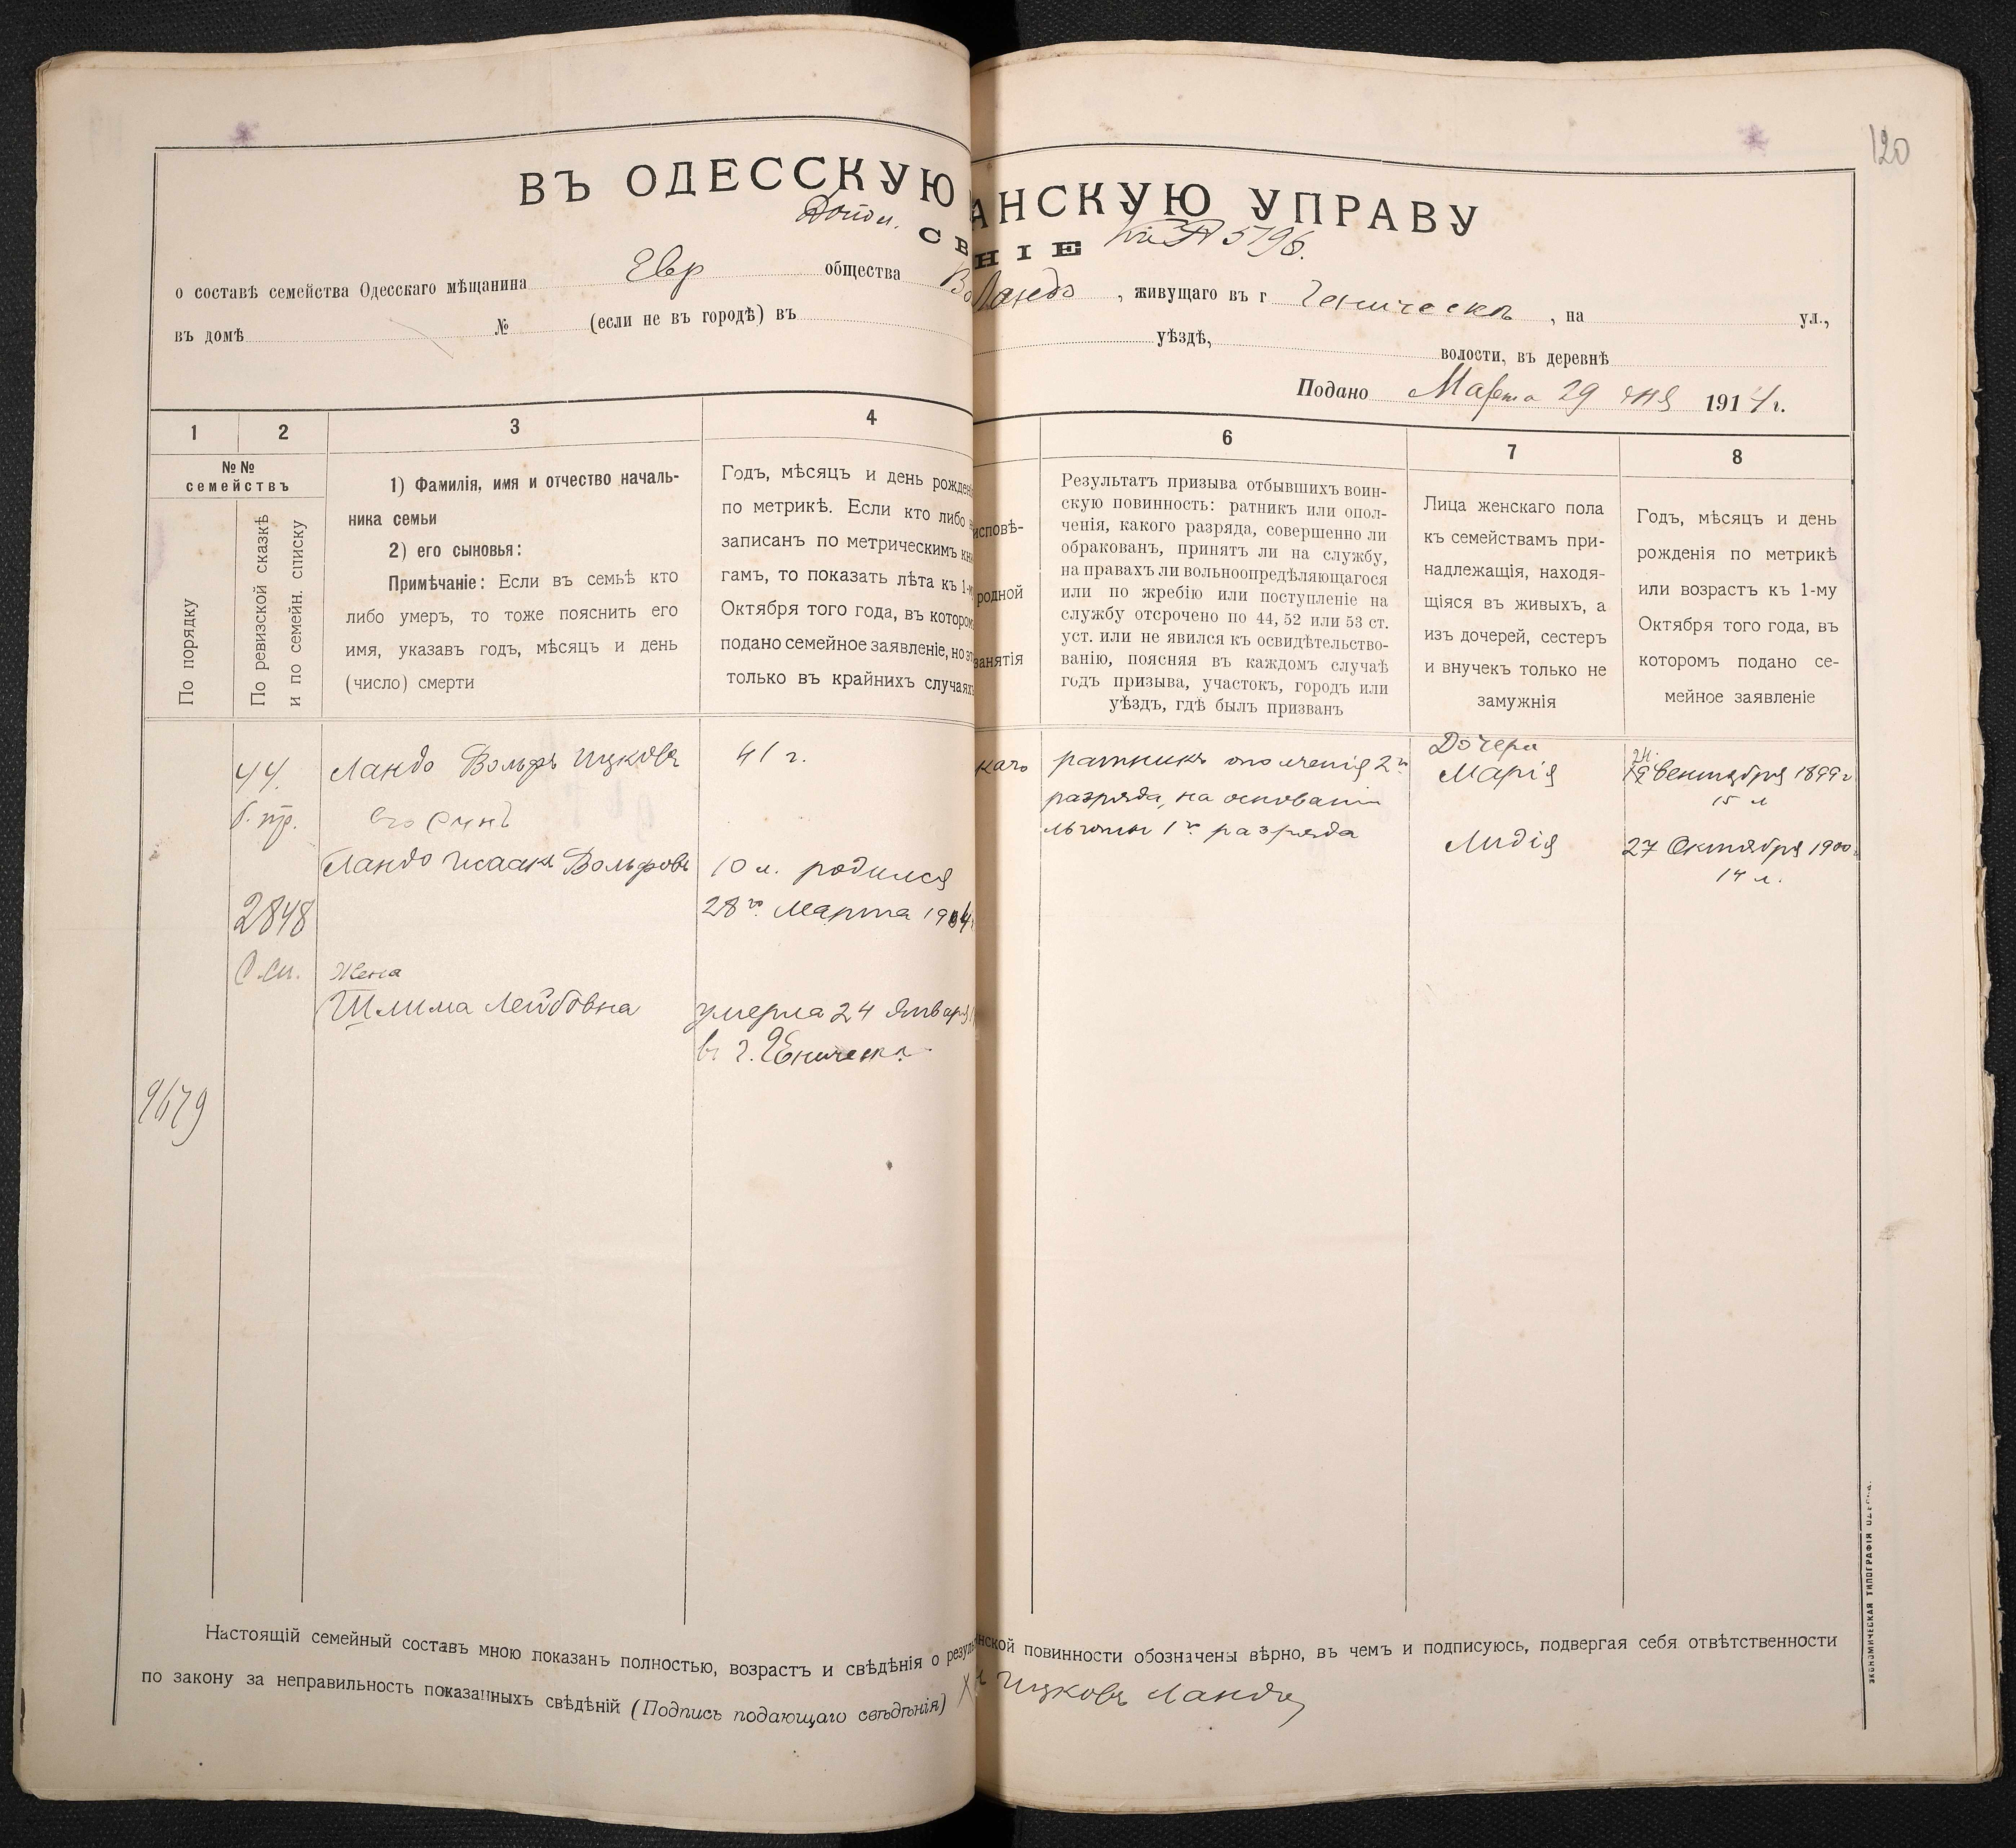 120
ВЪ ОДЕССКУЮ АНСКУЮ УПРАВУ
СВ НІЕ
5796.
о составѣ семейства Одесскаго мѣщанина Евр общества Во Ландо, живущаго въ г Геническѣ, на ул.,
въ домѣ № (если не въ городѣ) въ уѣздѣ, волости, въ деревнѣ
Подано Марта 29 дня 1914 г.
1
2
3
4
6
7
8
№№
семействъ
По порядку
По ревизской сказкѣ
и по семейн. списку
1) Фамилія, имя и отчество началь-
ника семьи
2) его сыновья:
Примѣчаніе: Если въ семьѣ кто
либо умеръ, то тоже пояснить его
имя, указавъ годъ, мѣсяцъ и день
(число) смерти
Годъ, мѣсяцъ и день рожден
по метрикѣ. Если кто либо
записанъ по метрическимъ кн
гамъ, то показать лѣта къ 1-м
Октября того года, въ которо
подано семейное заявленіе, но эт
только въ крайнихъ случаях
исповѣ-
родной
занятія
Результатъ призыва отбывшихъ воин-
скую повинность: ратникъ или опол-
ченія, какого разряда, совершенно ли
обракованъ, принятъ ли на службу,
на правахъ ли вольноопредѣляющагося
или по жребію или поступленіе на
службу отсрочено по 44, 52 или 53 ст.
уст. или не явился къ освидѣтельство-
ванію, поясняя въ каждомъ случаѣ
годъ призыва, участокъ, городъ или
уѣздъ, гдѣ былъ призванъ
Лица женскаго пола
къ семействамъ при-
надлежащія, находя-
щіяся въ живыхъ, а
изъ дочерей, сестеръ
и внучекъ только не
замужнія
Годъ, мѣсяцъ и день
рожденія по метрикѣ
или возрастъ къ 1-му
Октября того года, въ
которомъ подано се-
мейное заявленіе
44.
2848
С.сп.
9679
Ландо Вольфъ Ицковъ
его сынъ
Ландо Исаакъ Вольфовъ
Жена
Шлима Лейбовна
41 г.
10 л. родился
28го Марта 1904
умерла 24 Январ
въ г. Геническѣ
ратникъ ополченія 2го
разряда, на основаніи
льготы 1го разряда
Дочери
Марія
Лидія
24
19 Сентября 1899 г
15 л
27 Октября 1900
14 л.
Настоящій семейный составъ мною показанъ полностью, возрастъ и свѣдѣнія о резуль нской повинности обозначены вѣрно, въ чемъ и подписуюсь, подвергая себя отвѣтственности
по закону за неправильность показанныхъ свѣдѣній (Подпись подающаго свѣдѣнія) Ицковъ Ландо
ЭКОНОМИЧЕСКАЯ ТИПОГРАФІЯ ОДЕССА.